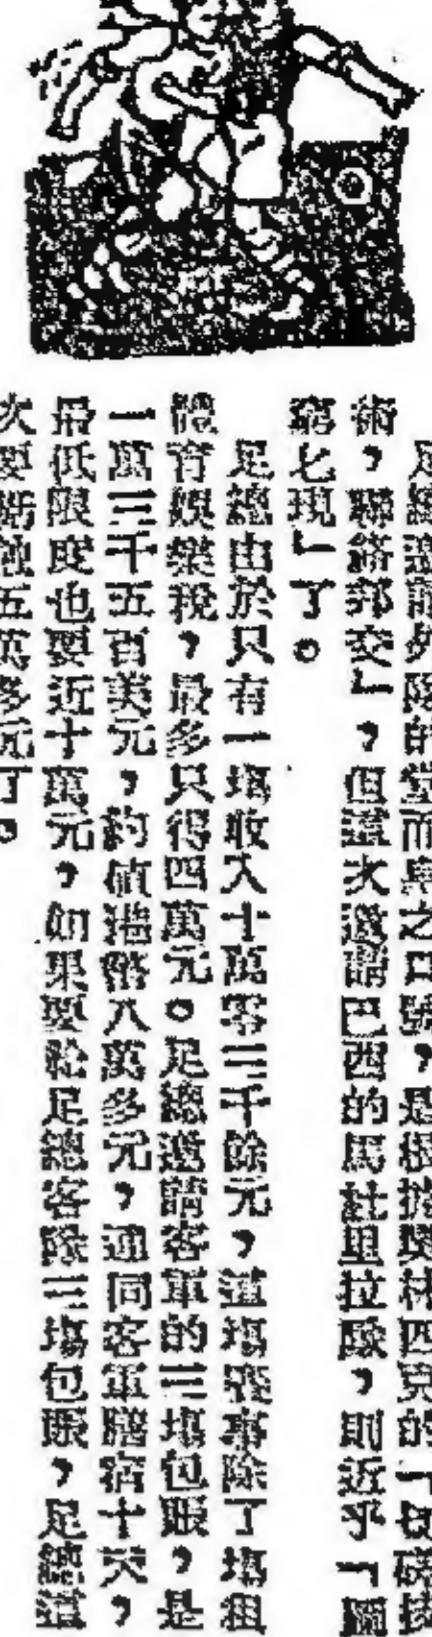 足總邀請外隊的堂而皇之口號，是根據奧林匹克的「切磋技
術，聯絡邦交」，但這次邀請巴西的馬杜里拉隊，則近乎「圖
窮匕現」了。
足總由於只有一場收入十萬零三千餘元，這場賽事除了場租
體育娛樂稅，最多只得四萬元。足總邀請客軍的三場包賬，是
一萬三千五百美元，約值港幣八萬多元，連同客軍膳宿十天，
最低限度也要近十萬元，如果要給足總客隊三場包賬，足總這
次要虧蝕五萬多元了。